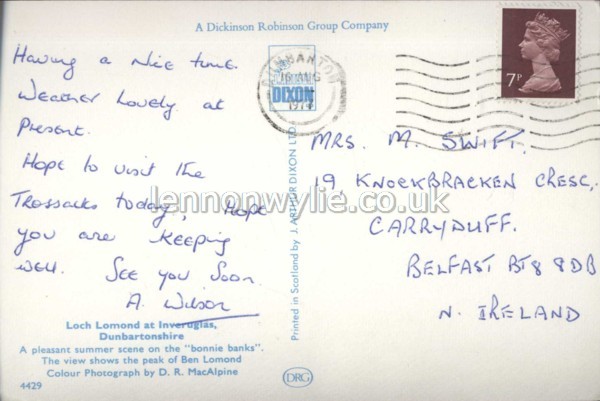 A Dickinson Robinson Group Company
Having a Nice time.
Weather Lovely at
Present.
Hope to visit the
Trossacks today, Hope
you are keeping
well. See you Soon.
A. Wilson
Loch Lomond at Inveruglas,
Dunbartonshire
A pleasant summer scene on the "bonnie banks".
The view shows the peak of Ben Lomond
Colour Photograph by D. R. MacAlpine
4429
Printed in Scotland by J. ARTHUR DIXON LTD
DIXON
DRG
DUMBARTON
16 AUG
7P
MRS. M. SWIFT.
19, KNOCKBRACKEN CRESC,
CARRYDUFF.
BELFAST BT8 8DB
N. IRELAND
lennonwylie.co.uk